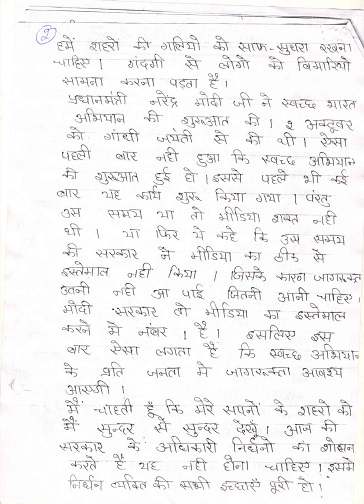 २
हमें शहरों की गलियों को साफ-सुथरा रखना
चाहिए। गंदगी से लोगों को बिमारियों
सामना करना पड़ता है।
प्रधानमंत्री नरेंद्र मोदी जी ने स्वच्छ भारत
अभियान की शुरुआत की। २ अक्टूबर
को गांधी जयंती से की थी। ऐसा
पहली बार नही हुआ कि स्वच्छ अभियान
की शुरुआत हुई हो। इससे पहले भी कई
बार यह कार्य शुरू किया गया। परंतु
उस समय या तो मीडिया शक्त नही
थी। या फिर ये कहे कि उस समय
की सरकार ने मीडिया का ठीक से
इस्तेमाल नही किया। जिसके कारन जागरूकता
उतनी नही आ पाई जितनी आनी चाहिए।
मोदी सरकार तो मीडिया का इस्तेमाल
करने में नंबर 1 है। इसलिए इस
बार ऐसा लगता है कि स्वच्छ अभियान
के प्रति जनता में जागरूकता अवश्य
आएगी।
मैं चाहती हूँ कि मेरे सपनों के शहरों को
मैं सुन्दर से सुन्दर देखूँ। आज की
सरकार के अधिकारी निर्धनो का शोषन
करते है यह नही होना चाहिए। इसमे
निर्धन व्यक्ति की सभी इच्छाएँ पूरी हो।